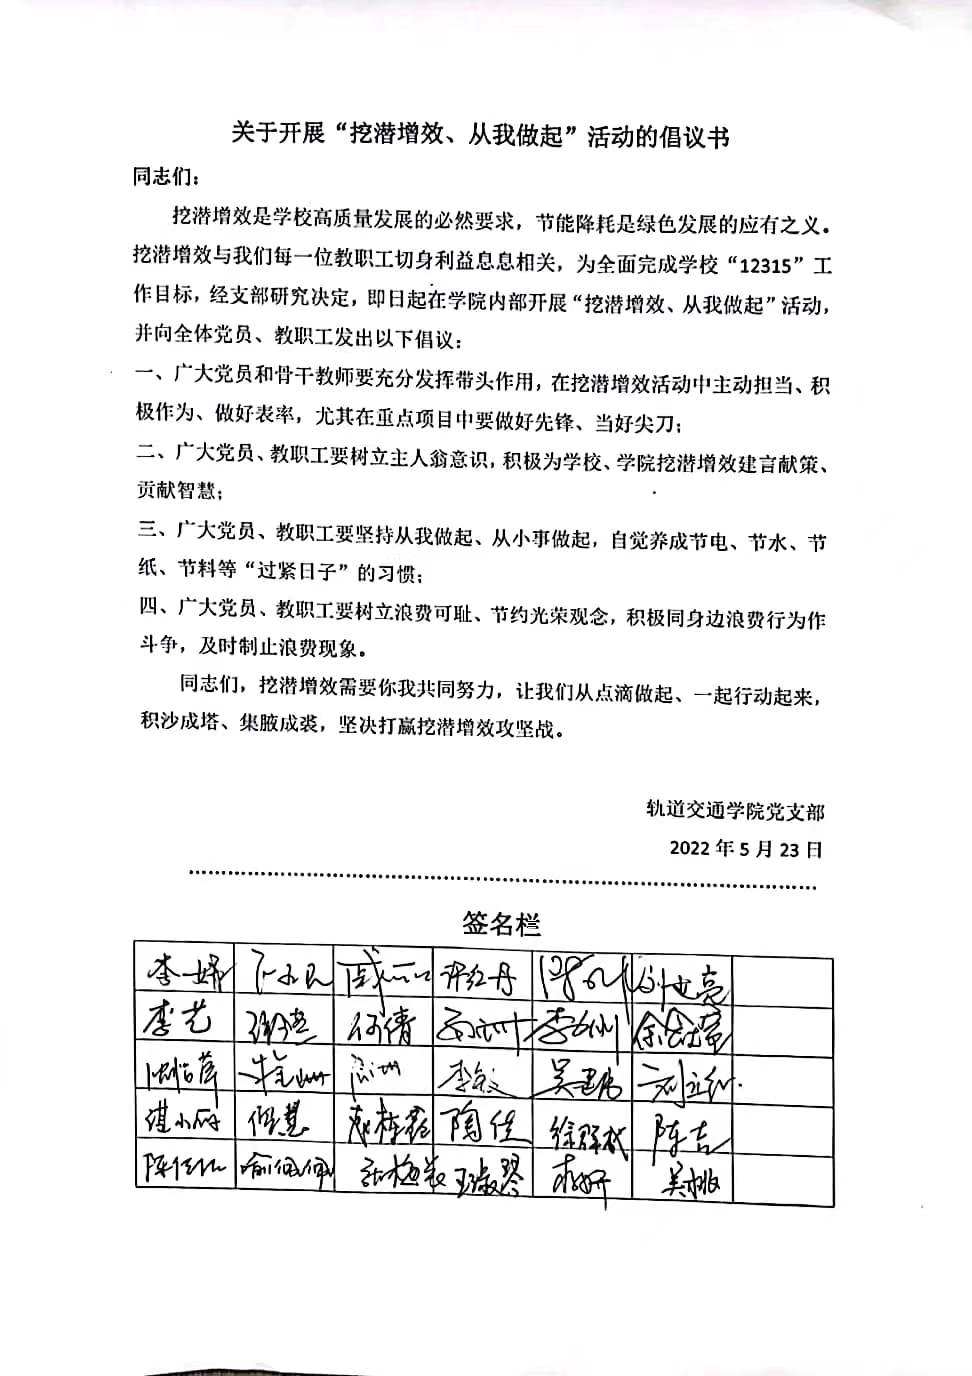 关于开展“挖潜增效、从我做起”活动的倡议书
同志们：
挖潜增效是学校高质量发展的必然要求，节能降耗是绿色发展的应有之义。
挖潜增效与我们每一位教职工切身利益息息相关，为全面完成学校“12315”工
作目标，经支部研究决定，即日起在学院内部开展“挖潜增效、从我做起”活动，
并向全体党员、教职工发出以下倡议：
一、广大党员和骨干教师要充分发挥带头作用，在挖潜增效活动中主动担当、积
极作为、做好表率，尤其在重点项目中要做好先锋、当好尖刀；
二、广大党员、教职工要树立主人翁意识，积极为学校、学院挖潜增效建言献策、
贡献智慧；
三、广大党员、教职工要坚持从我做起、从小事做起，自觉养成节电、节水、节
纸、节料等“过紧日子”的习惯；
四、广大党员、教职工要树立浪费可耻、节约光荣观念，积极同身边浪费行为作
斗争，及时制止浪费现象。
同志们，挖潜增效需要你我共同努力，让我们从点滴做起、一起行动起来，
积沙成塔、集腋成裘，坚决打赢挖潜增效攻坚战。
轨道交通学院党支部
2022 年 5 月 23 日
签名栏
李娣 许红丹
李艺 何倩
李敏
倪慧 陶佳 陈吉
喻佩佩 王淑琴 吴桃